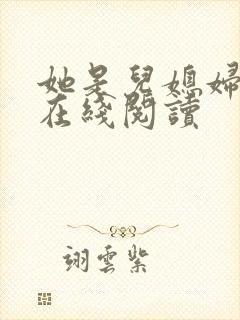 她是兒媳婦
在綫閱讀
翊雲紫